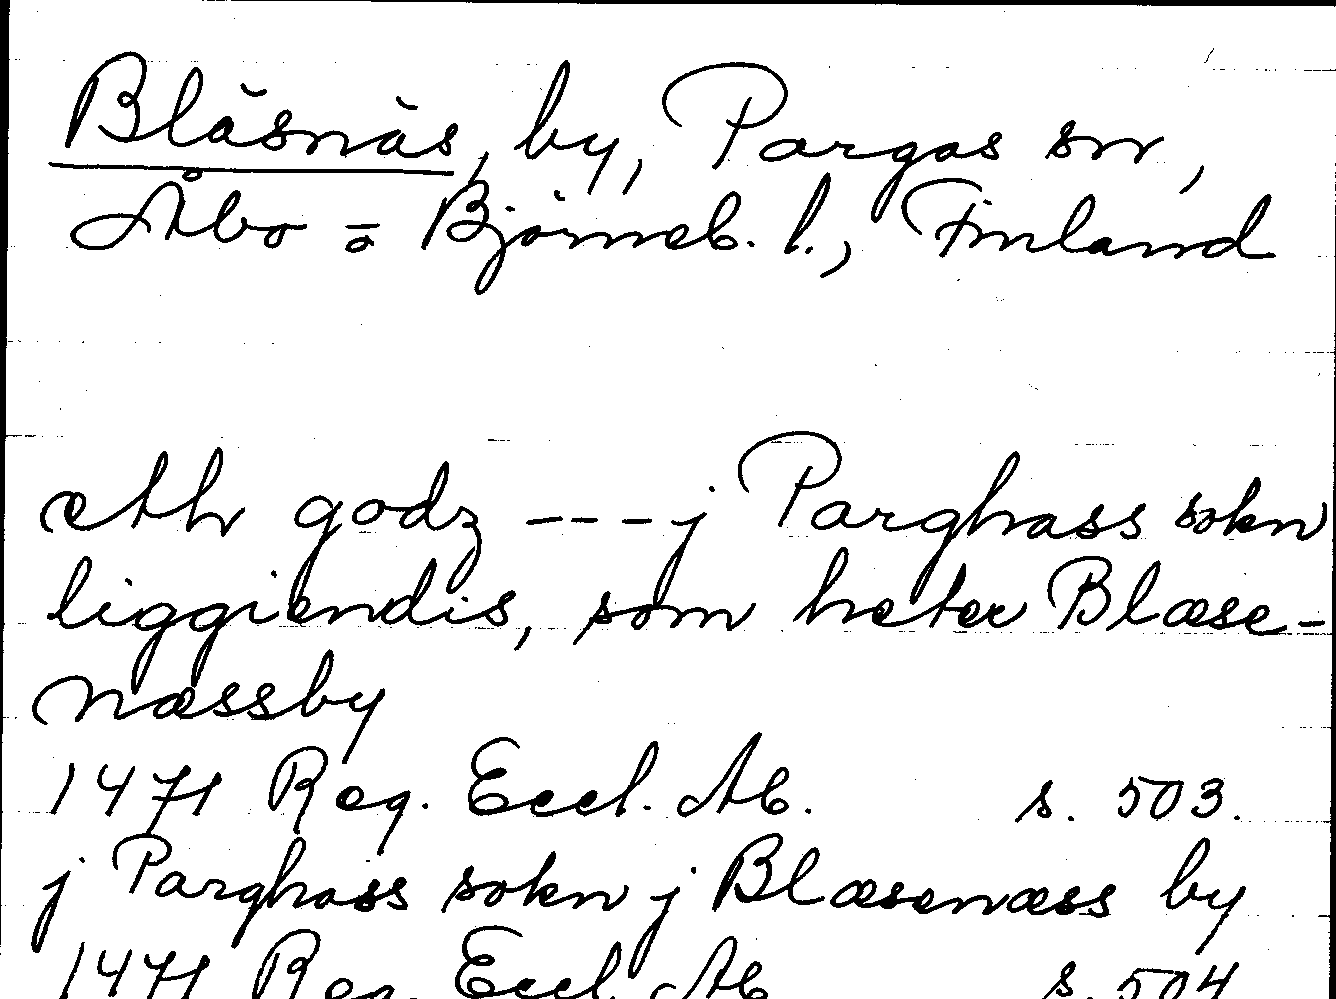 Bläsnäs, by, Pargas sn,
Åbo o Björneb. l., Finland
eth godz ---j Parghass sokn
liggiendis, som heter Blæse-
næssby
1471 Reg. Eccl. Ab. s. 503.
j Parghass sokn j Blæsenæss by
1471 Reg. Eccl. Ab s. 504